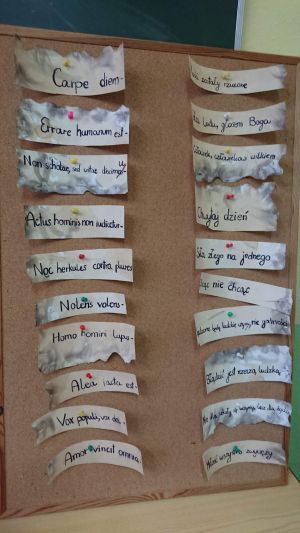 Carpe diem-
Errare humanum est-
Non scholae, sed vitae discimus-
Actus hominis non iudicatur-
Noc herkules contra plures
Nolens volens-
Homo homini lupus-
Alea iacta est-
Vox populi, vox dei-
Amor vincit omnia-
zostały rzucone
ludu, głosem Boga
Człowiek człowiekowi wilkiem
Chwytaj dzień
Siła złego na jednego
Chcąc nie chcąc
nie
jest rzeczą ludzką
Nie dla szkoły
wszystko zwycięży